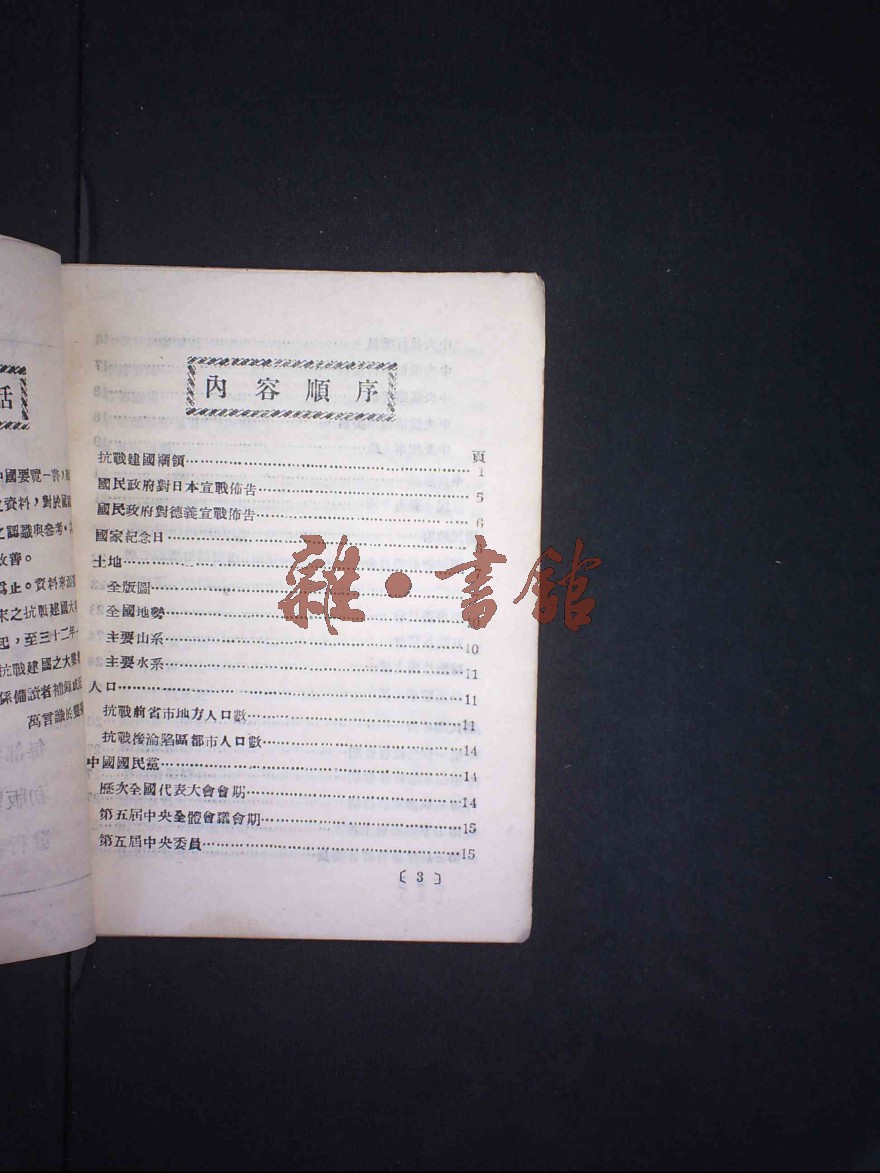 話
中國要覽一書，
之資料，對於國
之認識與參考，
改善。
為止。資料來源
末之抗戰建國大
起，至三十二年
抗戰建國之大業
係備讀者補錄
萬言識於
內容順序
頁
抗戰建國綱領 1
國民政府對日本宣戰佈告 5
國民政府對德義宣戰佈告 6
國家紀念日
土地 7
全版圖
全國地勢
主要山系 10
主要水系 11
人口 11
抗戰前省市地方人口數 11
抗戰後淪陷區都市人口數 14
中國國民黨 14
歷次全國代表大會會期 14
第五屆中央全體會議會期 15
第五屆中央委員 15
〔3〕
雜·書館